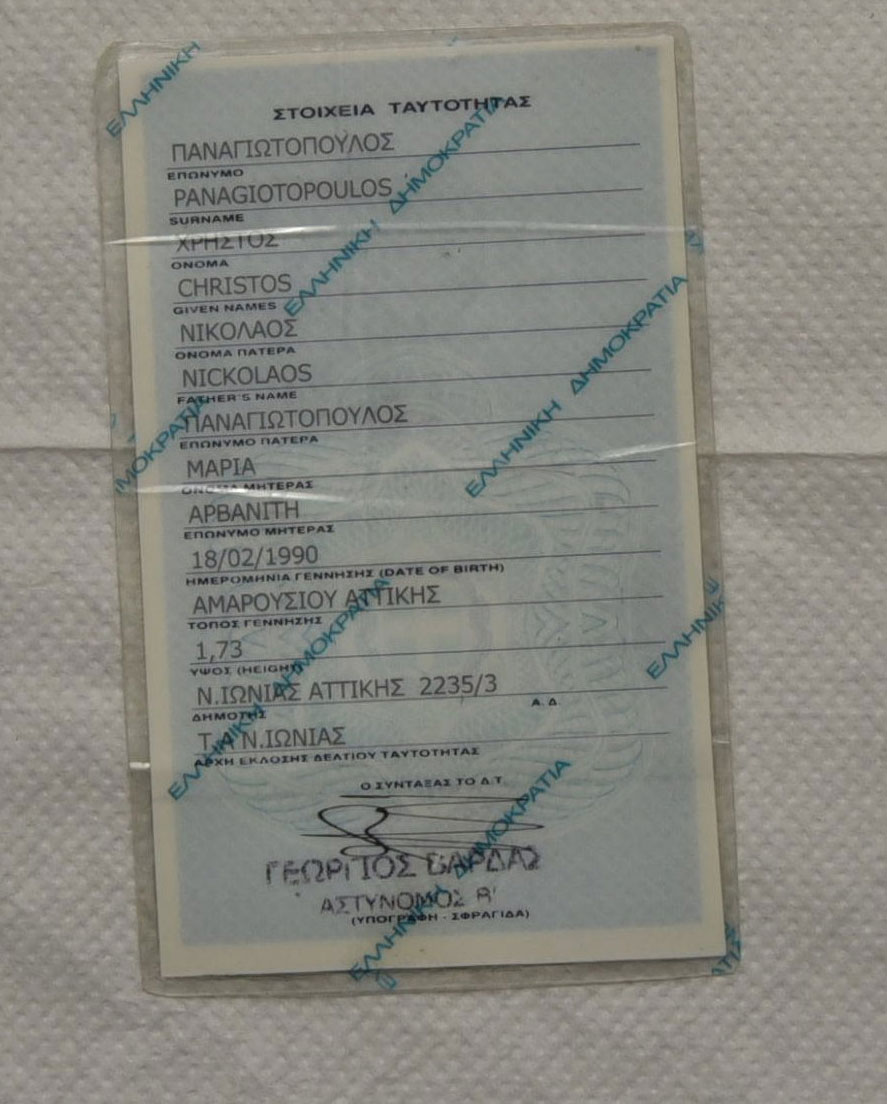 ΣΤΟΙΧΕΙΑ ΤΑΥΤΟΤΗΤΑΣ
ΠΑΝΑΓΙΩΤΟΠΟΥΛΟΣ
ΕΠΩΝΥΜΟ
PANAGIOTOPOULOS
SURNAME
ΧΡΗΣΤΟΣ
ΟΝΟΜΑ
CHRISTOS
GIVEN NAMES
ΝΙΚΟΛΑΟΣ
ΟΝΟΜΑ ΠΑΤΕΡΑ
NICKOLAOS
FATHER'S NAME
ΠΑΝΑΓΙΩΤΟΠΟΥΛΟΣ
ΕΠΩΝΥΜΟ ΠΑΤΕΡΑ
ΜΑΡΙΑ
ΟΝΟΜΑ ΜΗΤΕΡΑΣ
ΑΡΒΑΝΙΤΗ
ΕΠΩΝΥΜΟ ΜΗΤΕΡΑΣ
18/02/1990
ΗΜΕΡΟΜΗΝΙΑ ΓΕΝΝΗΣΗΣ (DATE OF BIRTH)
ΑΜΑΡΟΥΣΙΟΥ ΑΤΤΙΚΗΣ
ΤΟΠΟΣ ΓΕΝΝΗΣΗΣ
1,73
ΥΨΟΣ (HEIGHT)
Ν.ΙΩΝΙΑΣ ΑΤΤΙΚΗΣ 2235/3
ΔΗΜΟΤΗΣ Α.Δ.
Τ.Α Ν.ΙΩΝΙΑΣ
ΑΡΧΗ ΕΚΔΟΣΗΣ ΔΕΛΤΙΟΥ ΤΑΥΤΟΤΗΤΑΣ
Ο ΣΥΝΤΑΞΑΣ ΤΟ Δ.Τ.
ΓΕΩΡΓΙΟΣ ΒΑΡΔΑΣ
ΑΣΤΥΝΟΜΟΣ Β'
(ΥΠΟΓΡΑΦΗ - ΣΦΡΑΓΙΔΑ)
ΕΛΛΗΝΙΚΗ
ΕΛΛΗΝΙΚΗ ΔΗΜΟΚΡΑΤΙΑ
ΕΛΛΗΝΙΚΗ ΔΗΜΟΚΡΑΤΙΑ
ΕΛΛΗΝΙΚΗ ΔΗΜΟΚΡΑΤΙΑ
ΕΛΛΗΝΙΚΗ ΔΗΜΟΚΡΑΤΙΑ